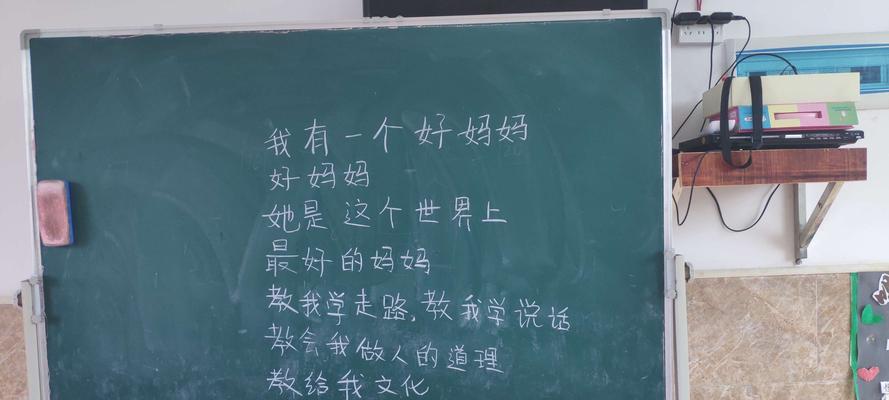 我有一个好妈妈
好妈妈
她是这个世界上
最好的妈妈
教我学走路,教我学说话
教会我做人的道理
教给我文化